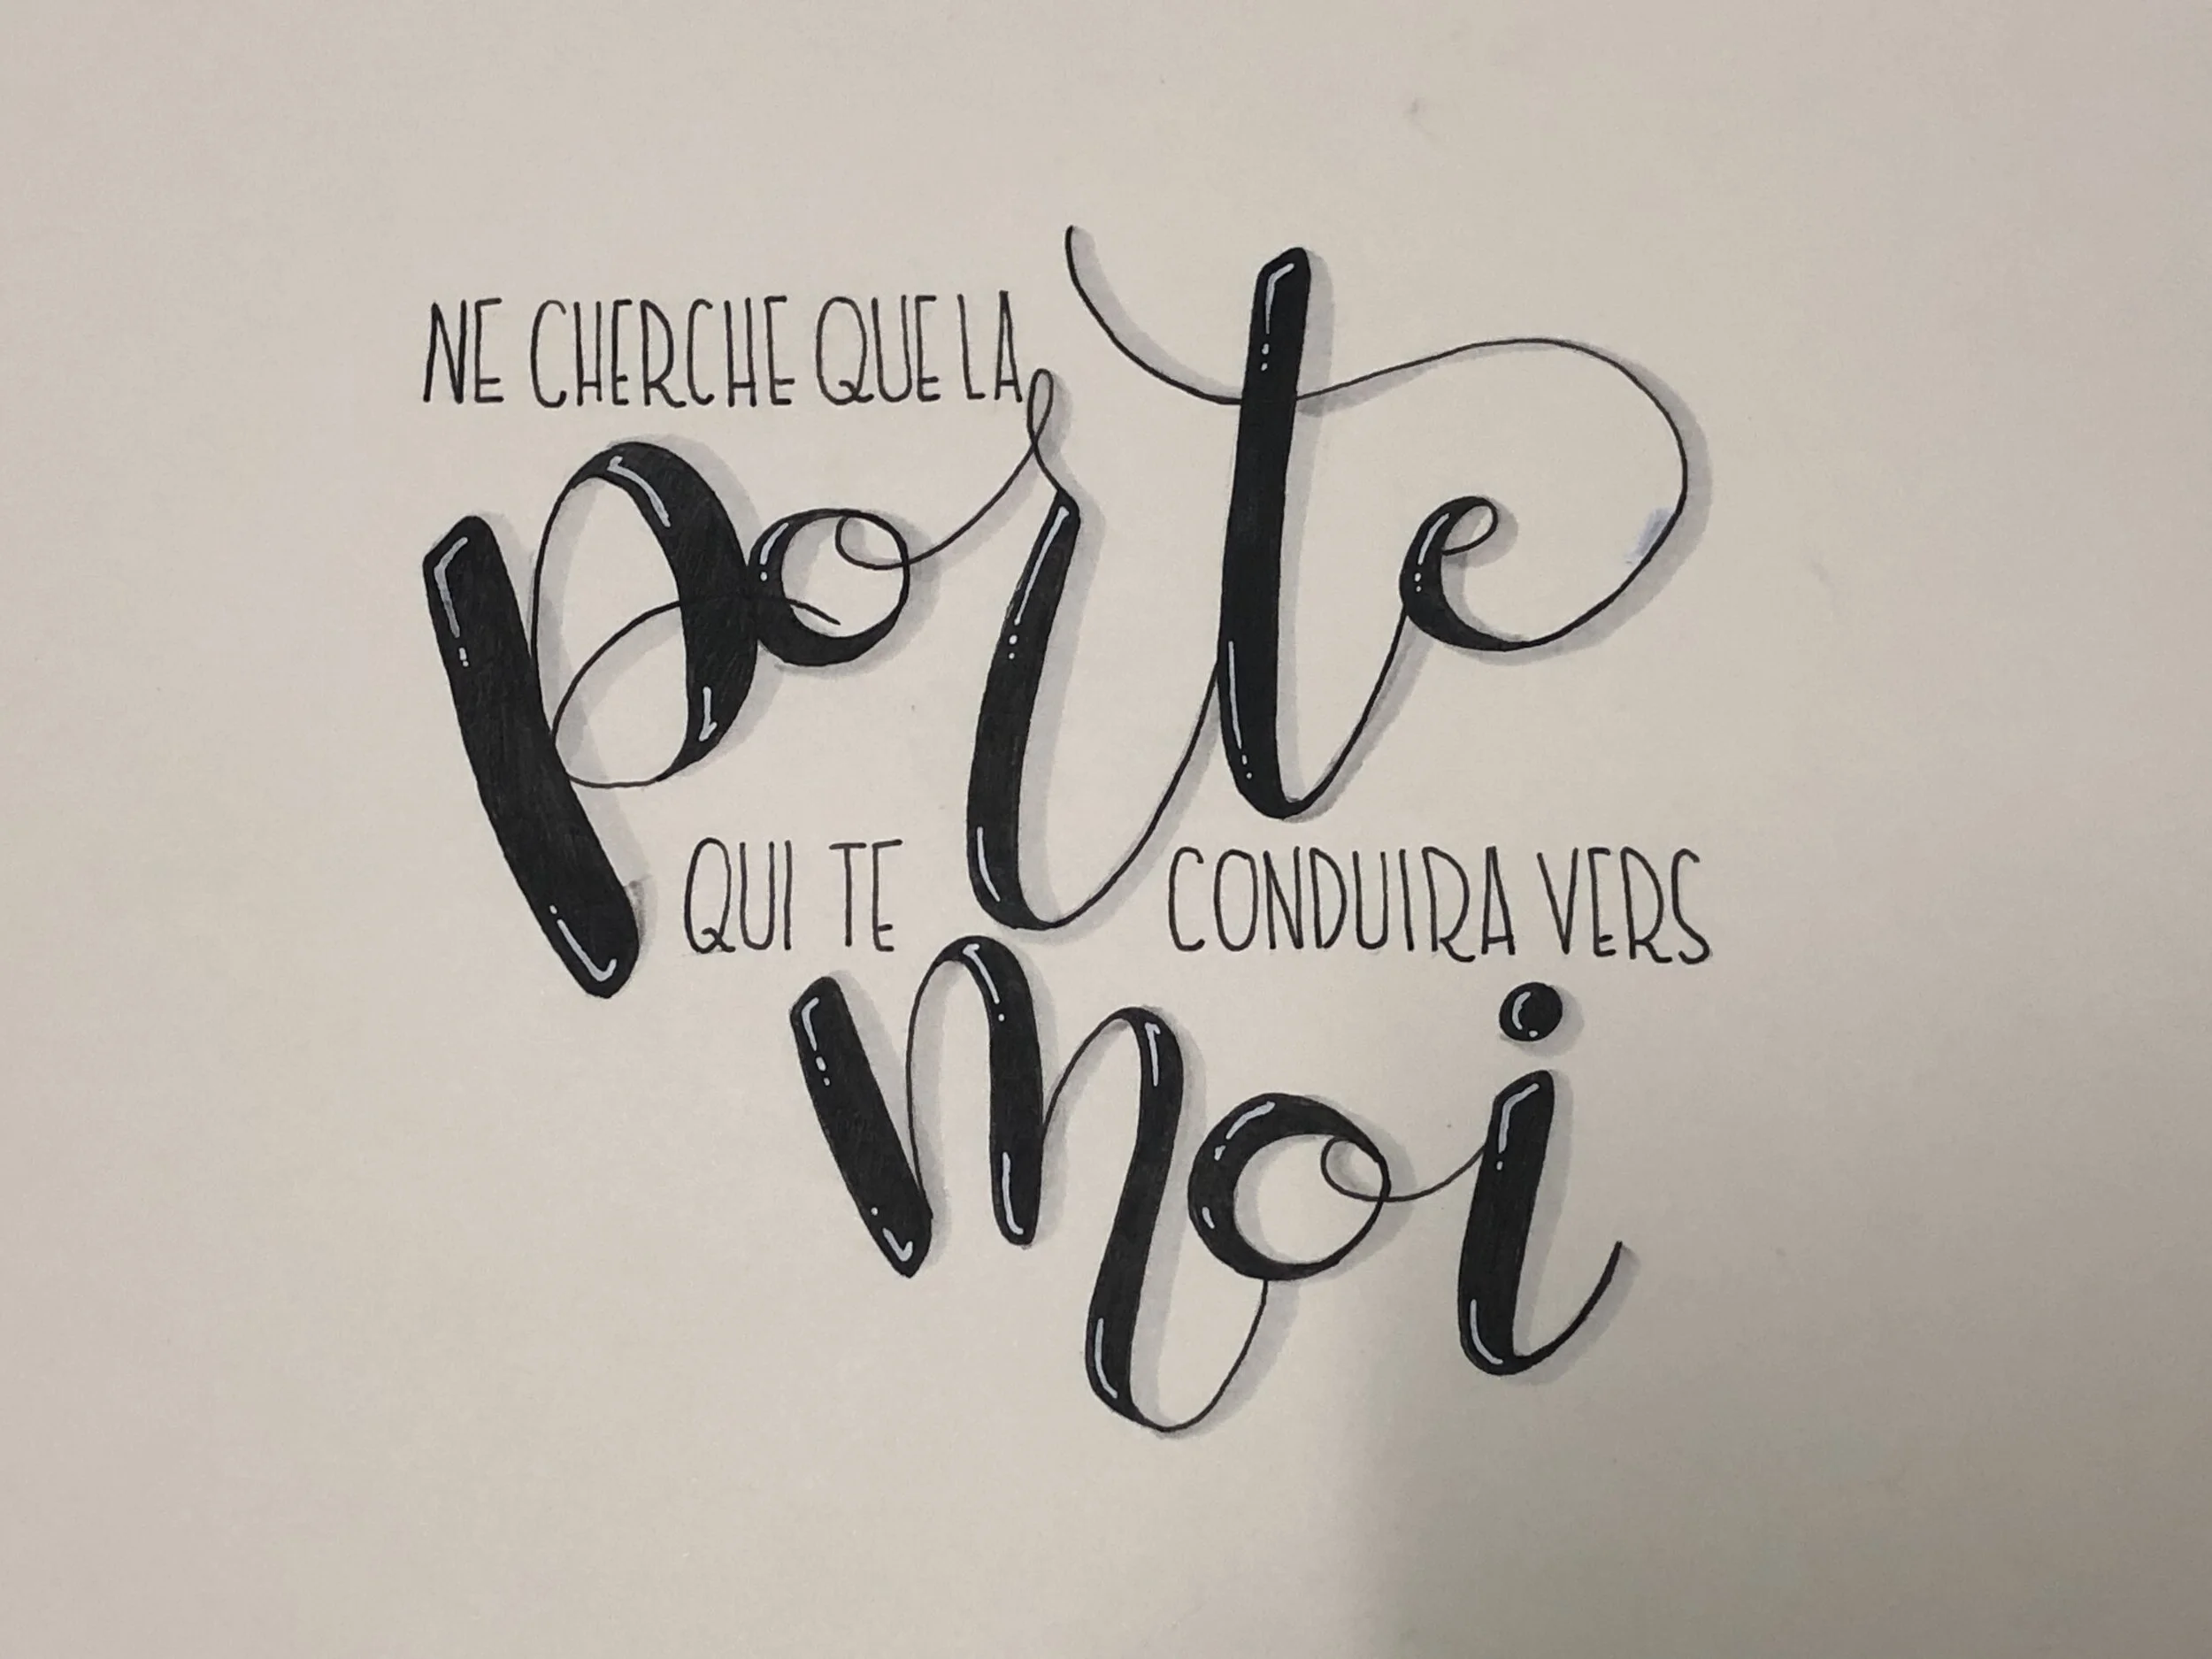 NE CHERCHE QUE LA
porte
QUI TE CONDUIRA VERS
moi